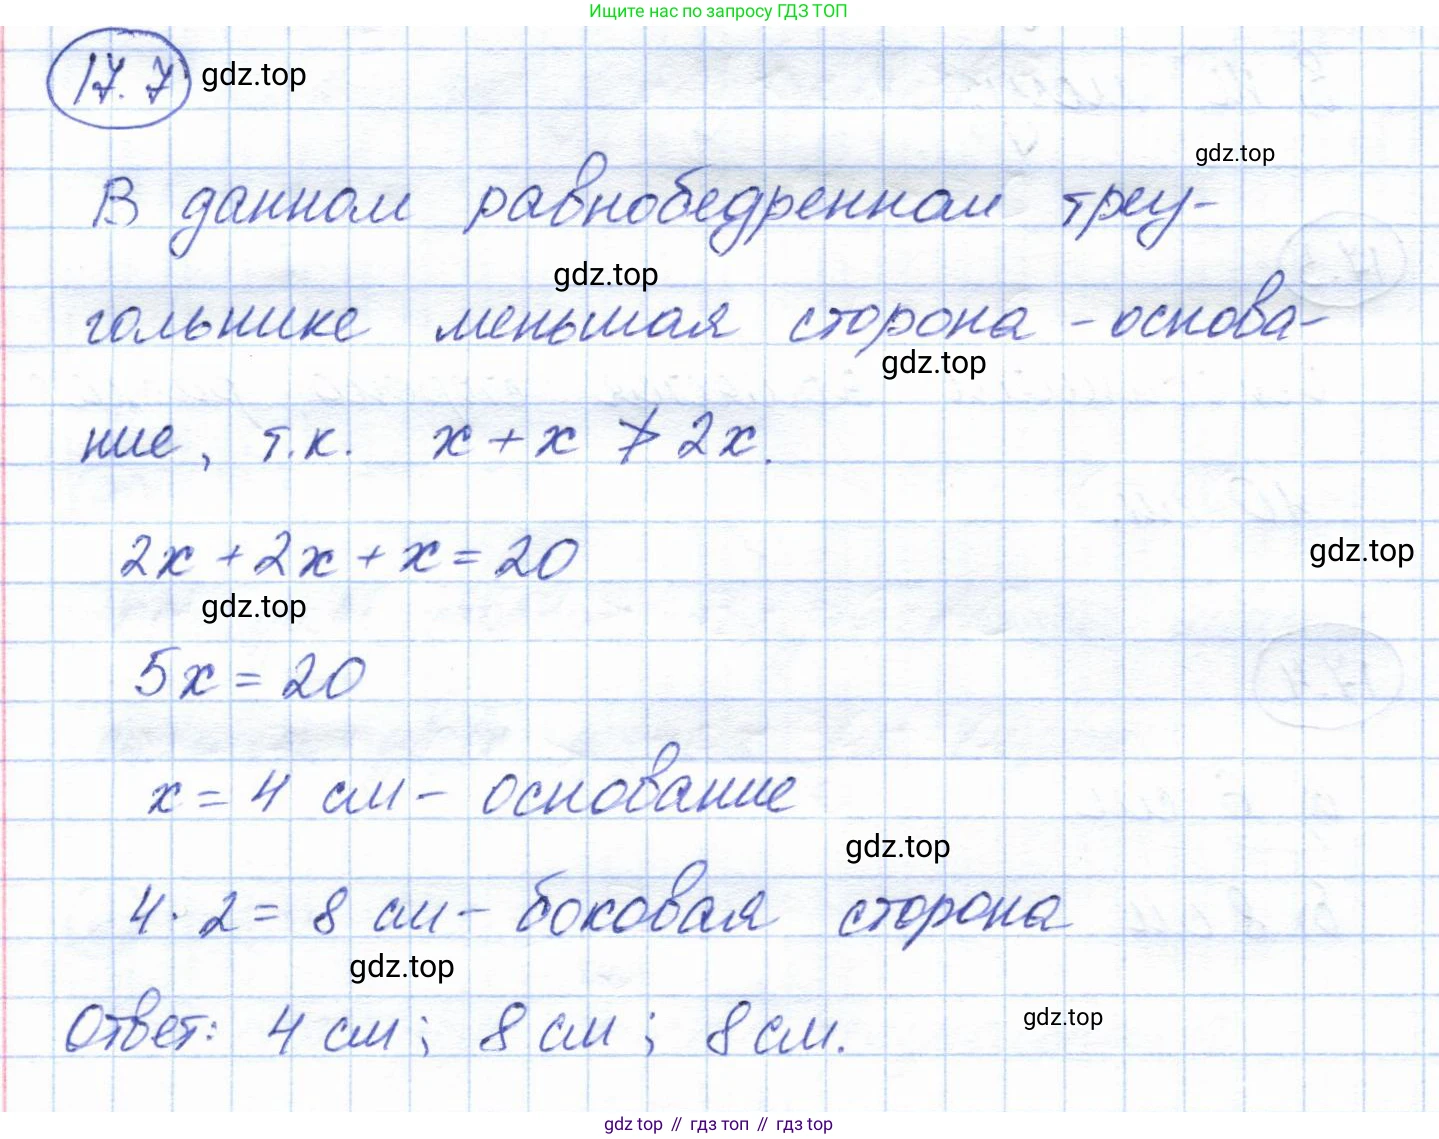 Ищите нас по запросу ГДЗ ТОП
17.7 gdz.top
gdz.top
В данном равнобедренном треу-
gdz.top
гольнике меньшая сторона - основа-
gdz.top
ние, т.к. x + x ≯ 2x.
2x + 2x + x = 20
gdz.top
gdz.top
5x = 20
x = 4 см - основание
gdz.top
4 · 2 = 8 см - боковая сторона
gdz.top
gdz.top
Ответ: 4 см; 8 см; 8 см.
gdz top // гдз топ // гдз top